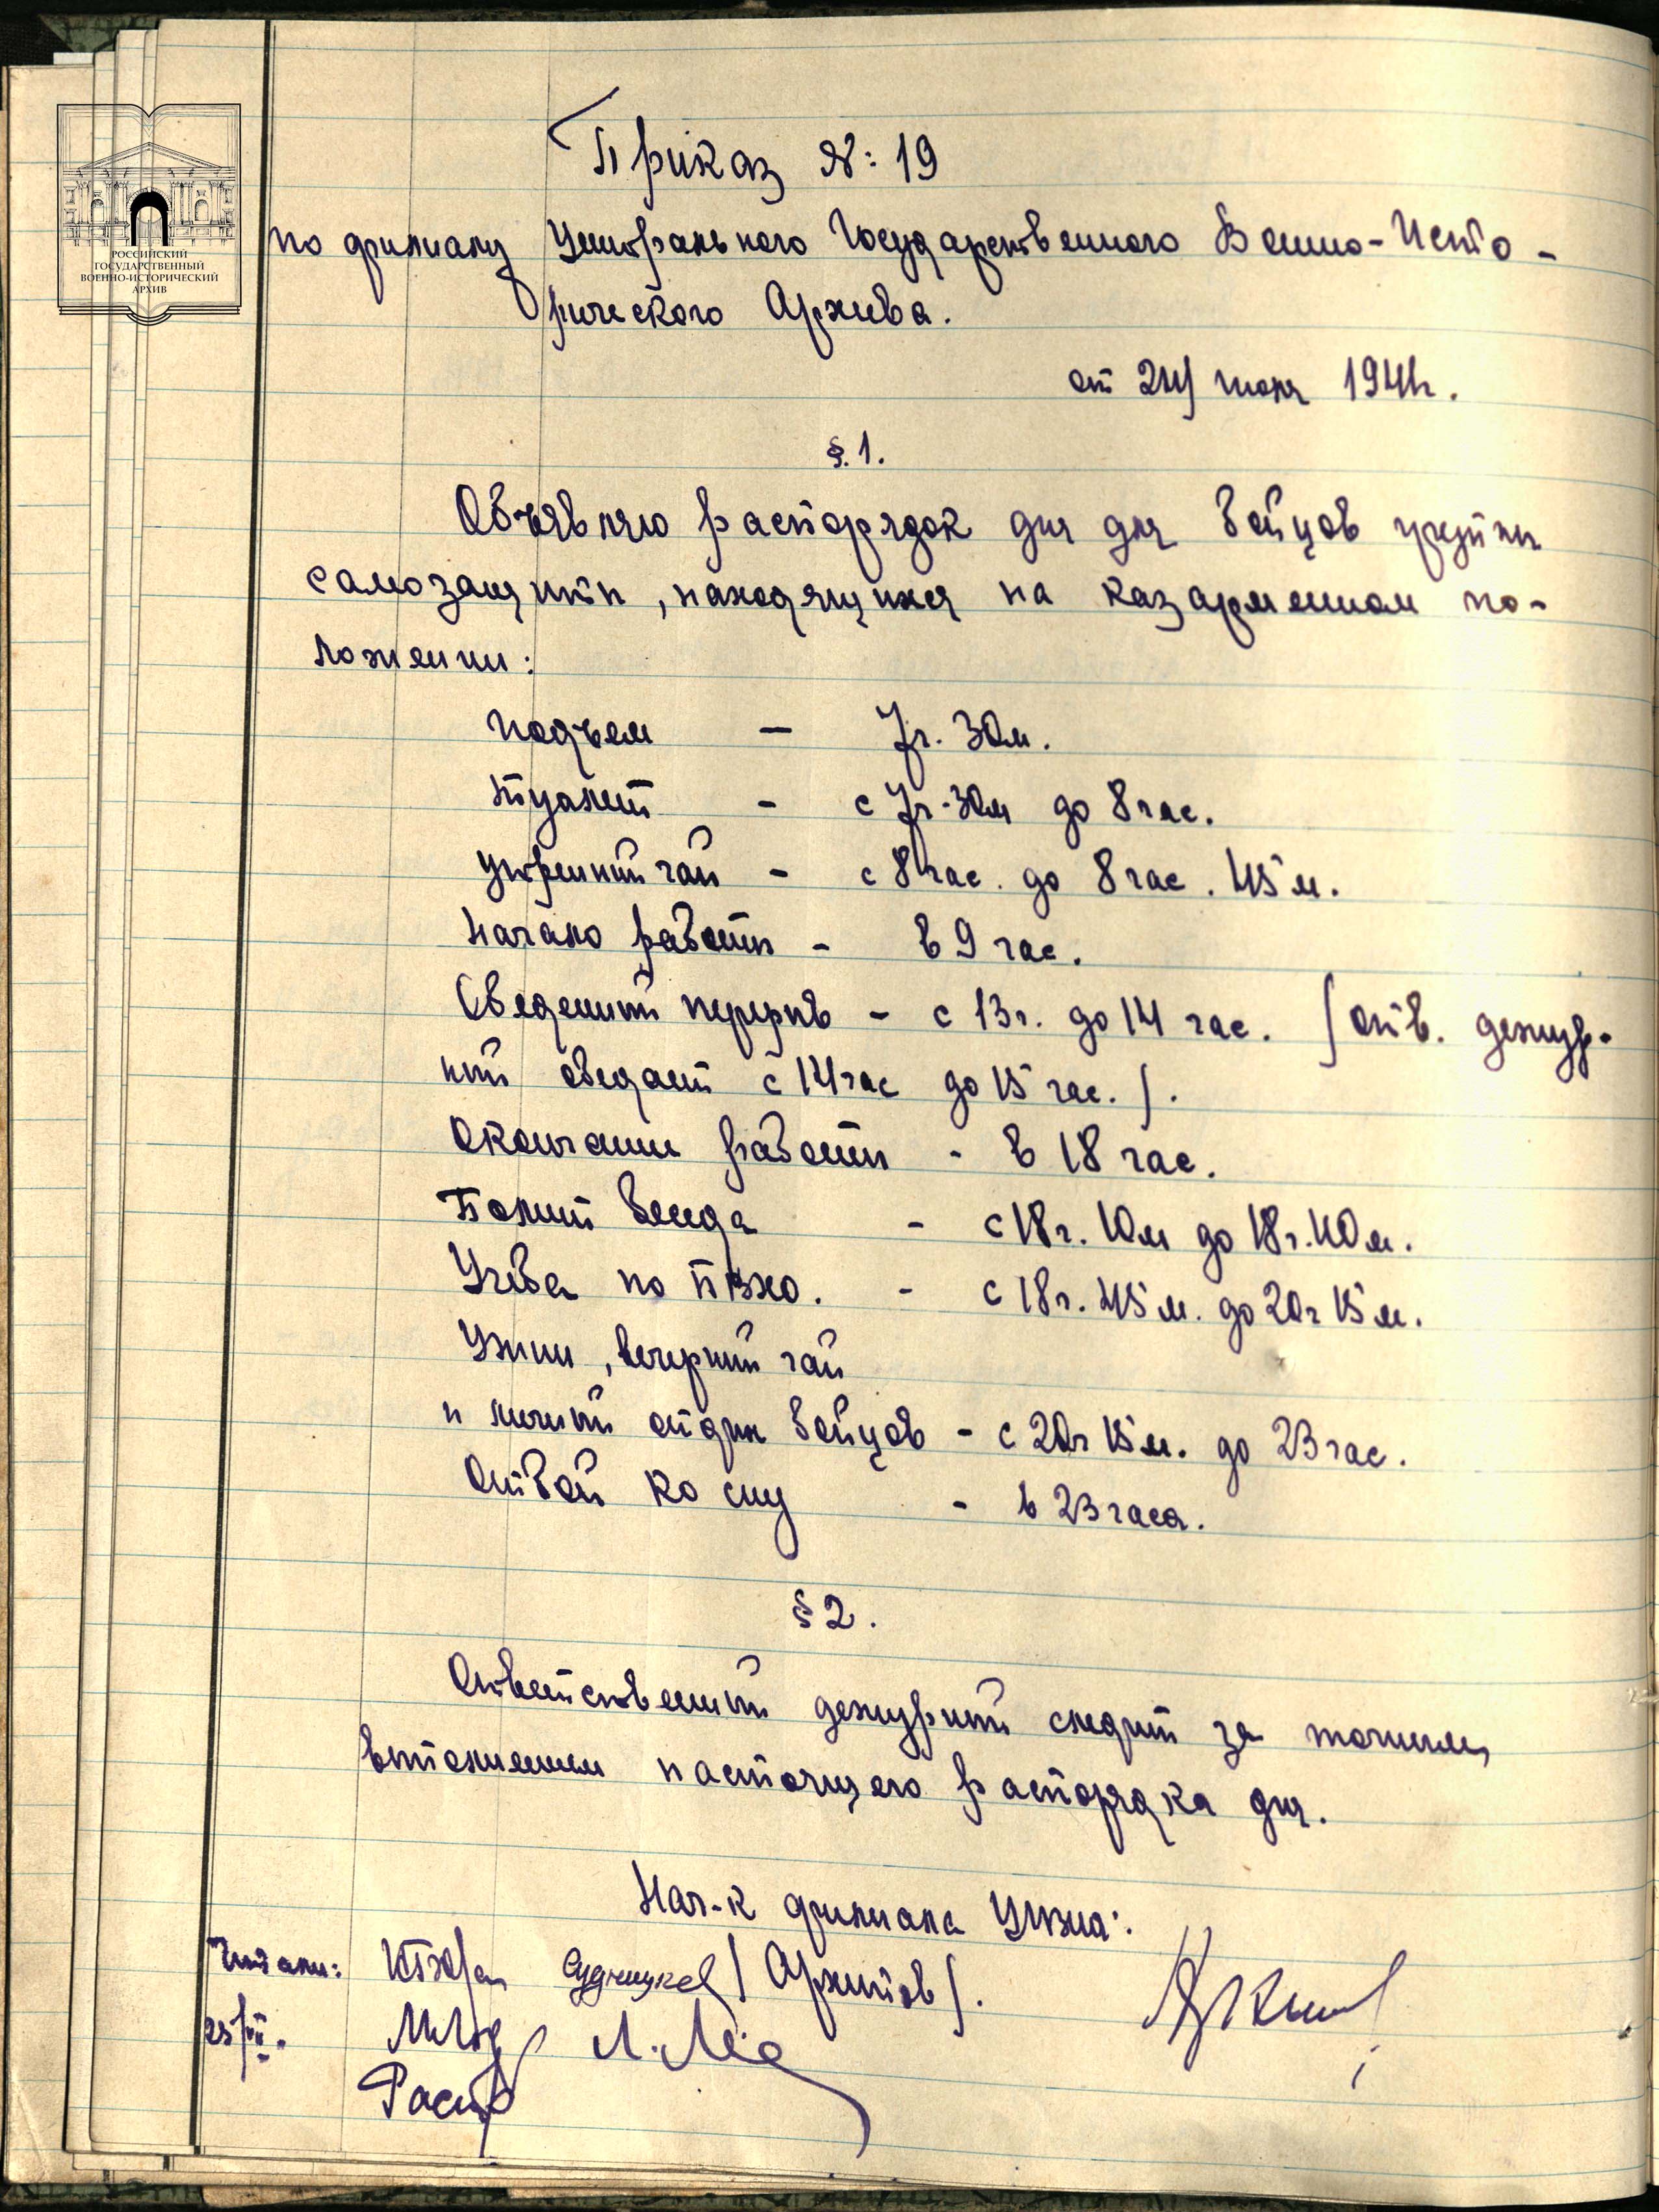 РОССИЙСКИЙ
ГОСУДАРСТВЕННЫЙ
ВОЕННО-ИСТОРИЧЕСКИЙ
АРХИВ
Приказ №: 19
по филиалу Центрального Государственного Военно-Исто-
рического Архива.
от 24/ июля 1941г.
§.1.
Объявляю распорядок дня для бойцов группы
самозащиты, находящихся на казарменном по-
ложении:
Подъем — 7ч. 30м.
Туалет - с 7ч. 30м до 8 час.
Утренний чай - с 8 час. до 8 час. 45 м.
Начало работы - в 9 час.
Обеденный перерыв - с 13ч. до 14 час. /отв. дежур-
ный обедает с 14 час до 15 час./.
Окончание работы - в 18 час.
Полит беседа - с 18ч. 10м до 18ч. 40м.
Учеба по ПВХО. - с 18ч. 45 м. до 20ч 15 м.
Ужин, вечерний чай
и личный отдых бойцов - с 20ч 15 м. до 23 час.
Отбой ко сну - в 23 часа.
§ 2.
Ответственный дежурный следит за точным
выполнением настоящего распорядка дня.
Нач-к филиала ЦГВИА:
Читали:
/Архипов/.